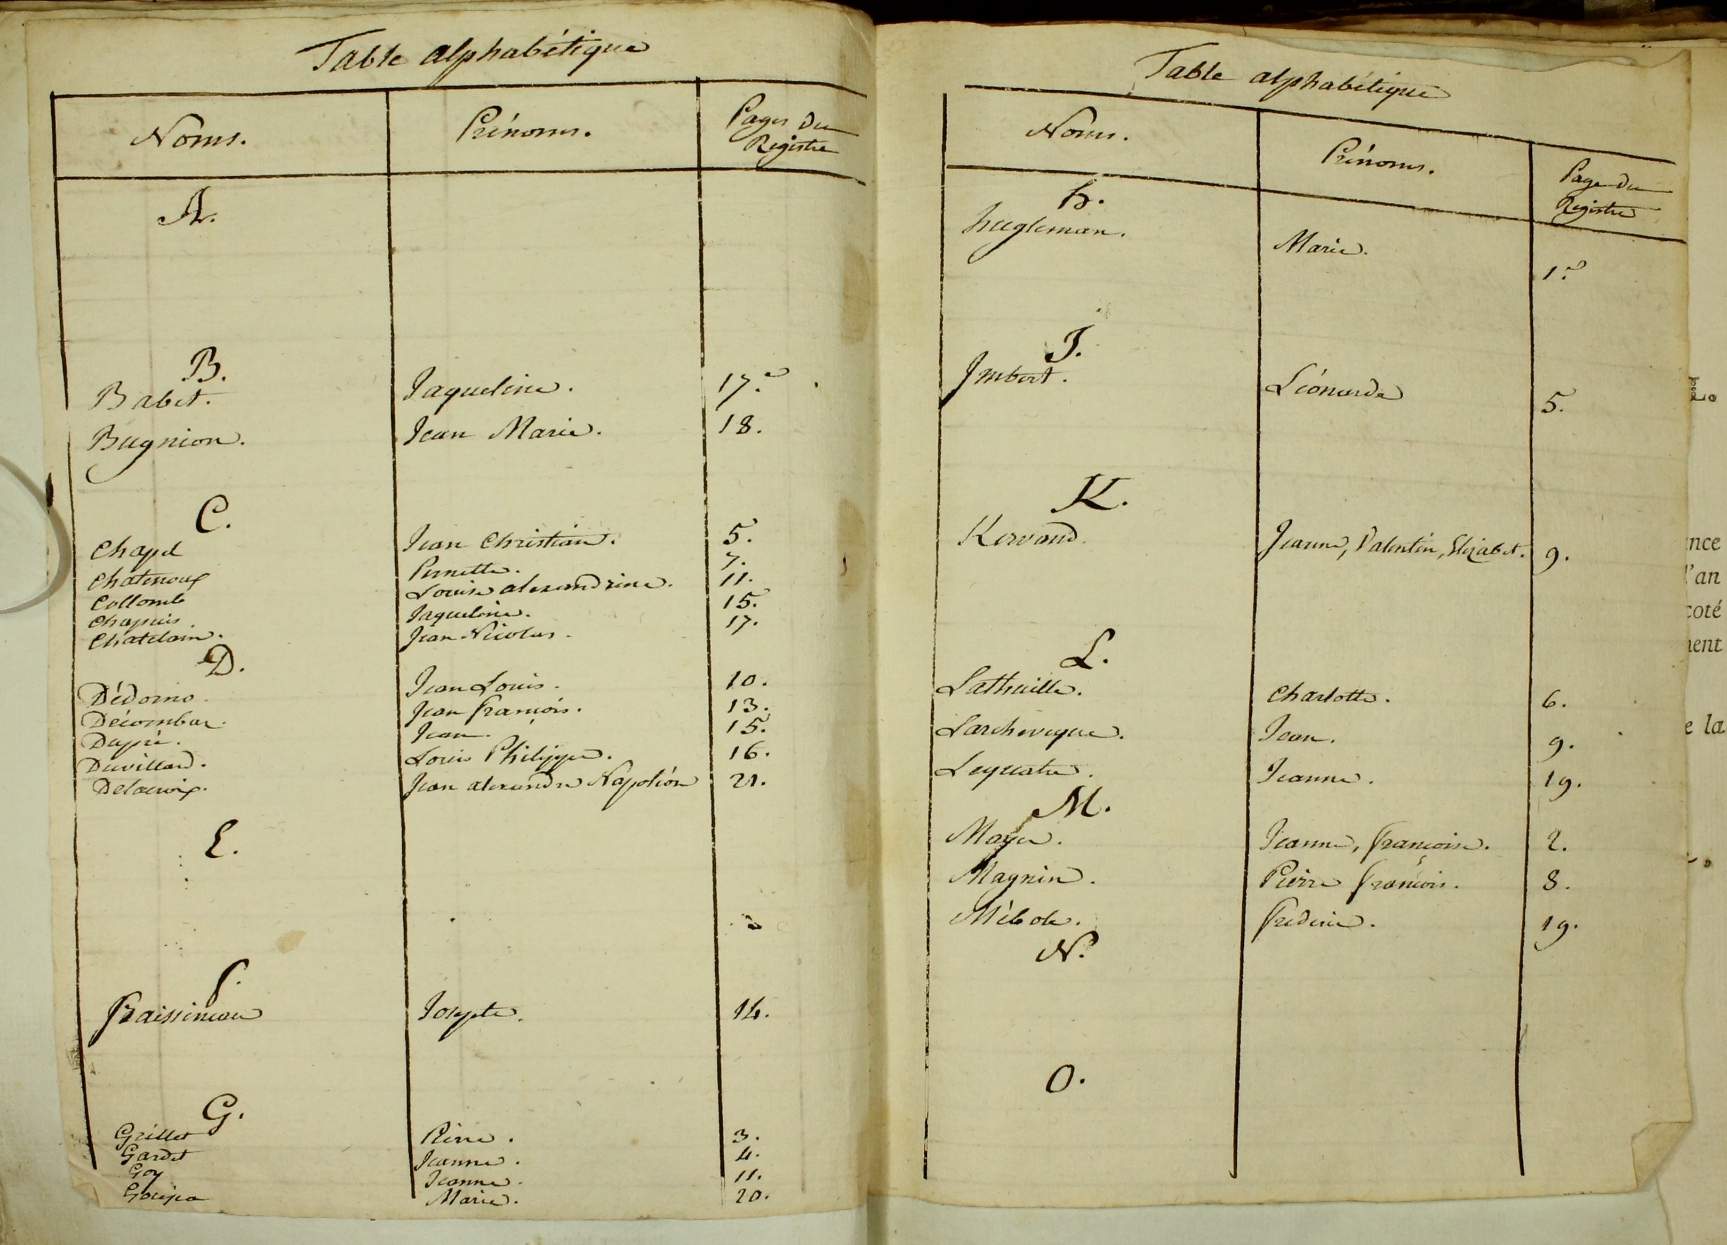 Table alphabétique
Noms. Prénoms. Pages du
Registre
A.
B.
Babet. Jaqueline. 17.
Bugnion. Jean Marie. 18.
C.
Chapel Jean Christian. 5.
Chatenoux Pernette. 7.
Collomb Louise alexandrine. 11.
Chapuis. Jaqueline. 15.
Chatelain. Jean Nicolas. 17.
D.
Dédomo. Jean Louis. 10.
Décombar. Jean françois. 13.
Dupré. Jean. 15.
Duvillard. Louis Philippe. 16.
Delacroix. Jean alexandre Napoléon 21.
E.
f.
fraissineau Josepte. 14.
G.
Grillet Pierre. 3.
Gardet Jeanne. 4.
Goy Jeanne. 11.
Marie. 20.
Table alphabétique
Noms. Prénoms. Page du
Registre
h.
hugleman. Marie. 1.
I.
Imbert. Léonarde 5.
K.
Kervand Jeanne, Valentin, Elizabet. 9.
L.
Lathuille. Charlotte. 6.
Larcheveque. Jean. 9.
Lequatre. Jeanne. 19.
M.
Mayer. Jeanne, françoise. 2.
Magnin. Pierre françois. 8.
Mébole. frederic. 19.
N.
O.
nce
l'an
coté
ment
e la